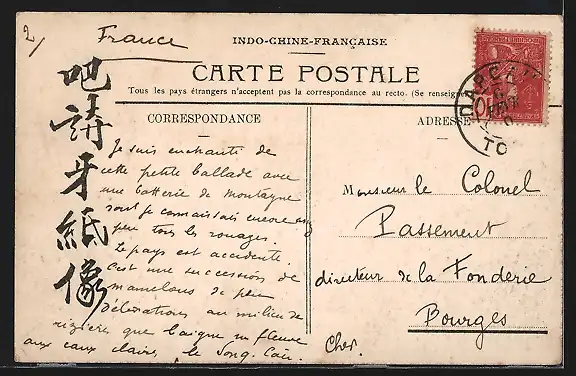 2/
France
INDO-CHINE-FRANÇAISE
CARTE POSTALE
Tous les pays étrangers n'acceptent pas la correspondance au recto. (Se renseigner
CORRESPONDANCE
ADRESSE
TO
吧講牙紙像
Je suis enchanté de
cette petite ballade avec
une batterie de montagne
dont je connaissais encore un
peu tous les rouages.
Le pays est accidenté.
C'est une succession de
mamelons de peu
d'élévations au milieu de
rizières que baigne un fleuve
aux eaux claires, le Song Cau.
Monsieur le Colonel
Passement
directeur de la Fonderie
Bourges
Cher.